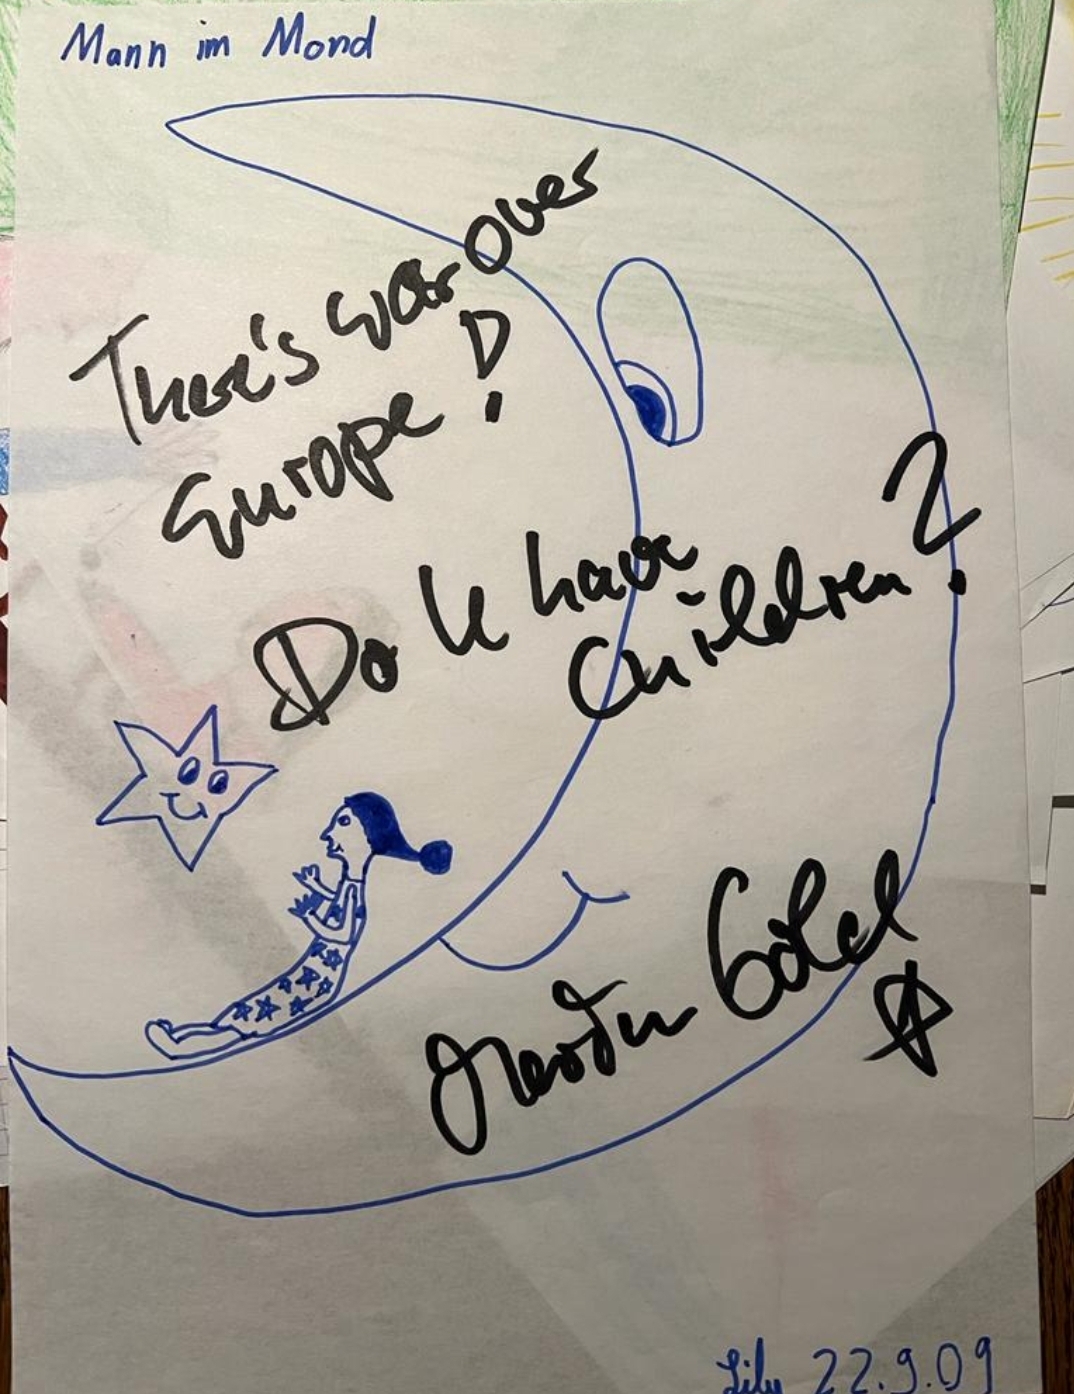 Mann im Mond
There's war over
Europe!
Do U have
Children?
Gold
Lily 22.9.09